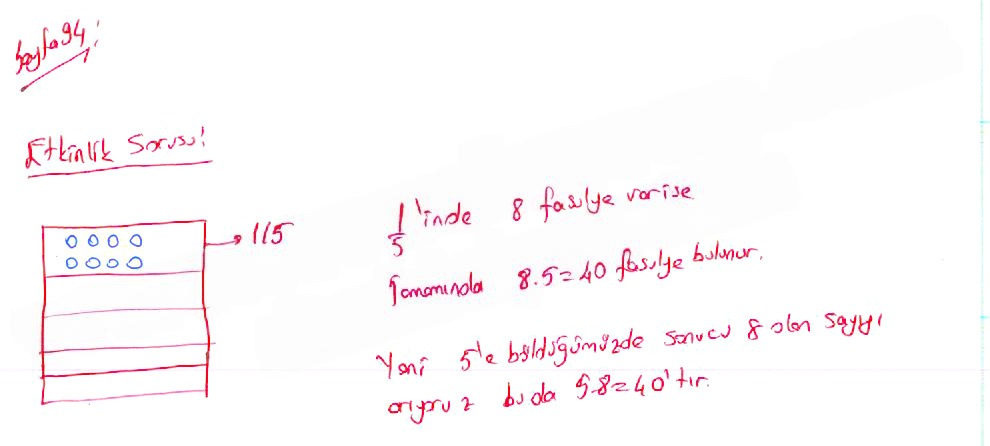 Sayfa 94:
Etkinlik Sorusu:
→ 1/5
1/5 'inde 8 fasulye var ise
Tamamında 8.5=40 fasulye bulunur.
Yani 5'e böldüğümüzde sonucu 8 olan sayıyı
arıyoruz bu da 5.8=40'tır.